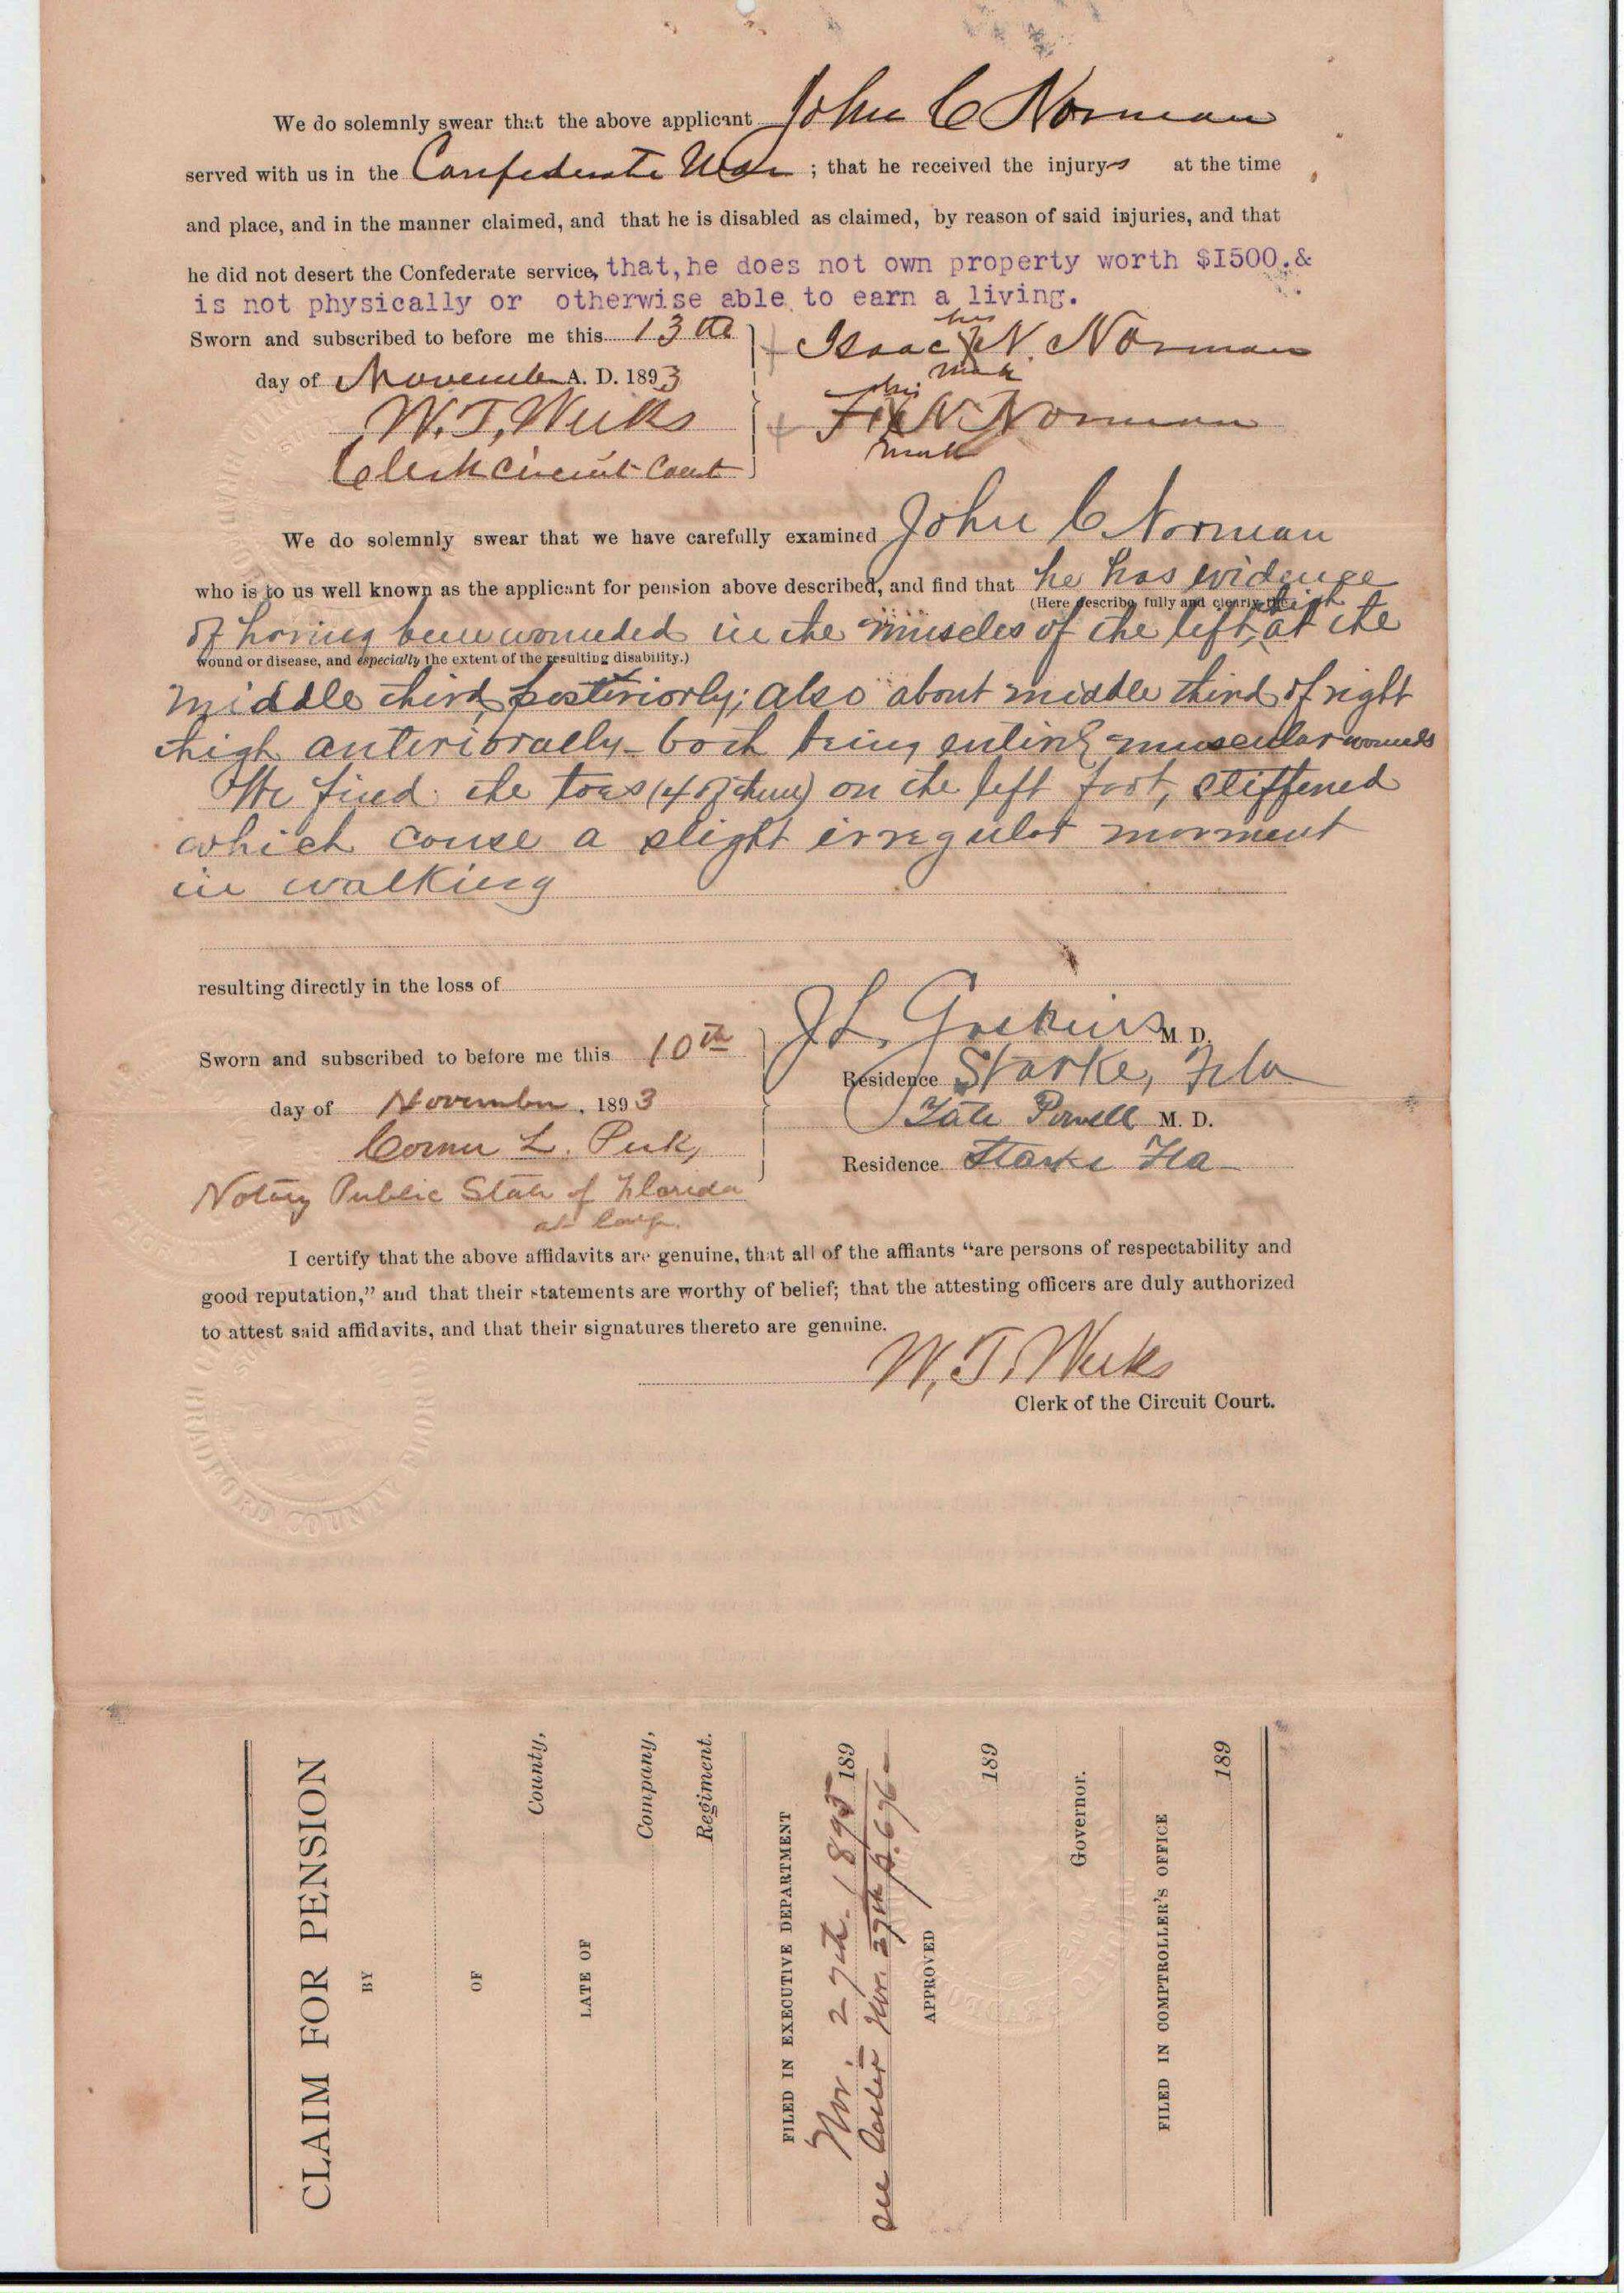 We do solemnly swear that the above applicant John C Norman
served with us in the Confederate War ; that he received the injurys at the time
and place, and in the manner claimed, and that he is disabled as claimed, by reason of said injuries, and that
he did not desert the Confederate service, that, he does not own property worth $I500.&
is not physically or otherwise able to earn a living.
Sworn and subscribed to before me this 13th
day of November A. D. 1893
W. T. Weeks
Clerk Circuit Court
his
Isaac X N. Norman
mark
his
X N. Norman
mark
We do solemnly swear that we have carefully examined John C Norman
who is to us well known as the applicant for pension above described, and find that he has evidence
(Here describe fully and clearly the
of having been wounded in the muscles of the left thigh at the
wound or disease, and especially the extent of the resulting disability.)
middle third, posteriorly; also about middle third of right
thigh anteriorally - both being entirely muscular wounds
We find the toes (4 of them) on the left foot, stiffened
which couse a slight irregular movment
in walking
resulting directly in the loss of
Sworn and subscribed to before me this 10th
day of November, 1893
Comer L. Peek,
Notary Public State of Florida
at large.
J L. Gaskins M. D.
Residence Starke, Fla
Tate Powell M. D.
Residence Starke Fla
I certify that the above affidavits are genuine, that all of the affiants “are persons of respectability and
good reputation,” and that their statements are worthy of belief; that the attesting officers are duly authorized
to attest said affidavits, and that their signatures thereto are genuine.
W. T. Weeks
Clerk of the Circuit Court.
BRADFORD COUNTY
CLAIM FOR PENSION
BY
OF
County,
LATE OF
Company,
Regiment.
FILED IN EXECUTIVE DEPARTMENT
Nov. 27th. 1895 189
see Nov. 27th p. 696-
APPROVED
189
Governor.
FILED IN COMPTROLLER'S OFFICE
189